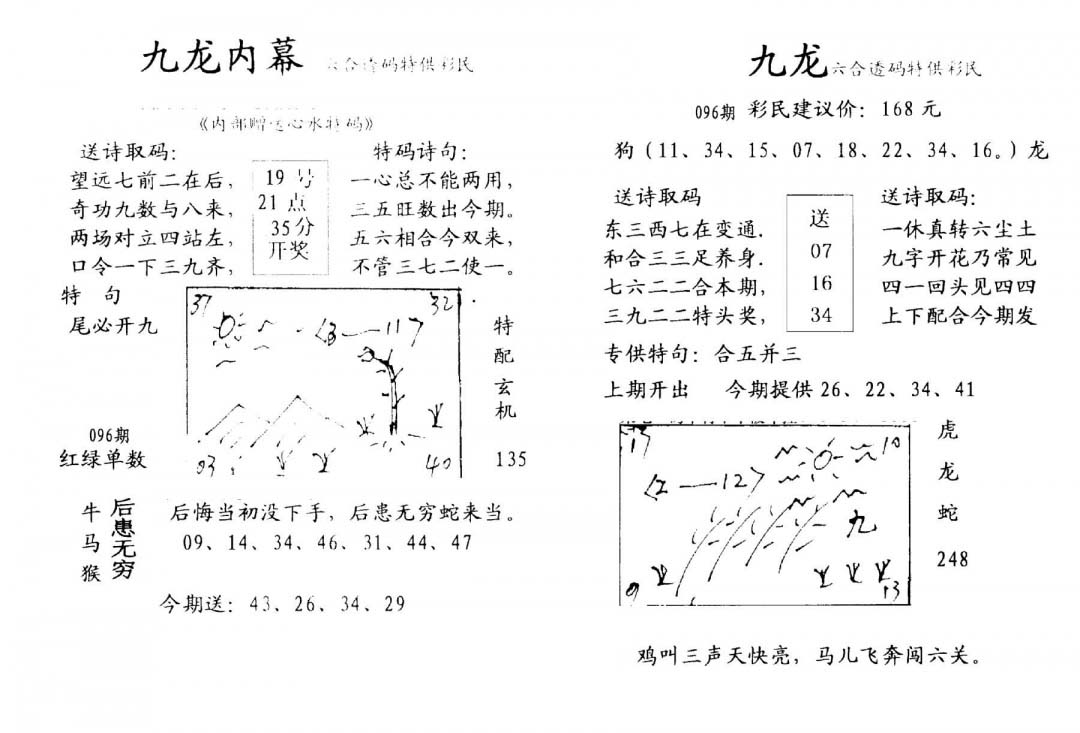 九龙内幕 六合透码特供彩民
《内部赠送心水特码》
送诗取码:
望远七前二在后,
奇功九数与八来,
两场对立四站左,
口令一下三九齐,
19 号
21 点
35分
开奖
特码诗句:
一心总不能两用,
三五旺数出今期。
五六相合今双来,
不管三七二使一。
特 句
尾必开九
096期
红绿单数
37
32
<3——11>
03
40
特配玄机
135
牛马猴
后患无穷
后悔当初没下手,后患无穷蛇来当。
09、14、34、46、31、44、47
今期送: 43、26、34、29
九龙六合透码特供彩民
096期 彩民建议价: 168 元
狗(11、34、15、07、18、22、34、16。)龙
送诗取码
东三西七在变通.
和合三三足养身.
七六二二合本期,
三九二二特头奖,
送
07
16
34
送诗取码:
一休真转六尘土
九字开花乃常见
四一回头见四四
上下配合今期发
专供特句: 合五并三
上期开出 今期提供 26、22、34、41
10
<2——12>
九
9
13
虎
龙
蛇
248
鸡叫三声天快亮, 马儿飞奔闯六关。